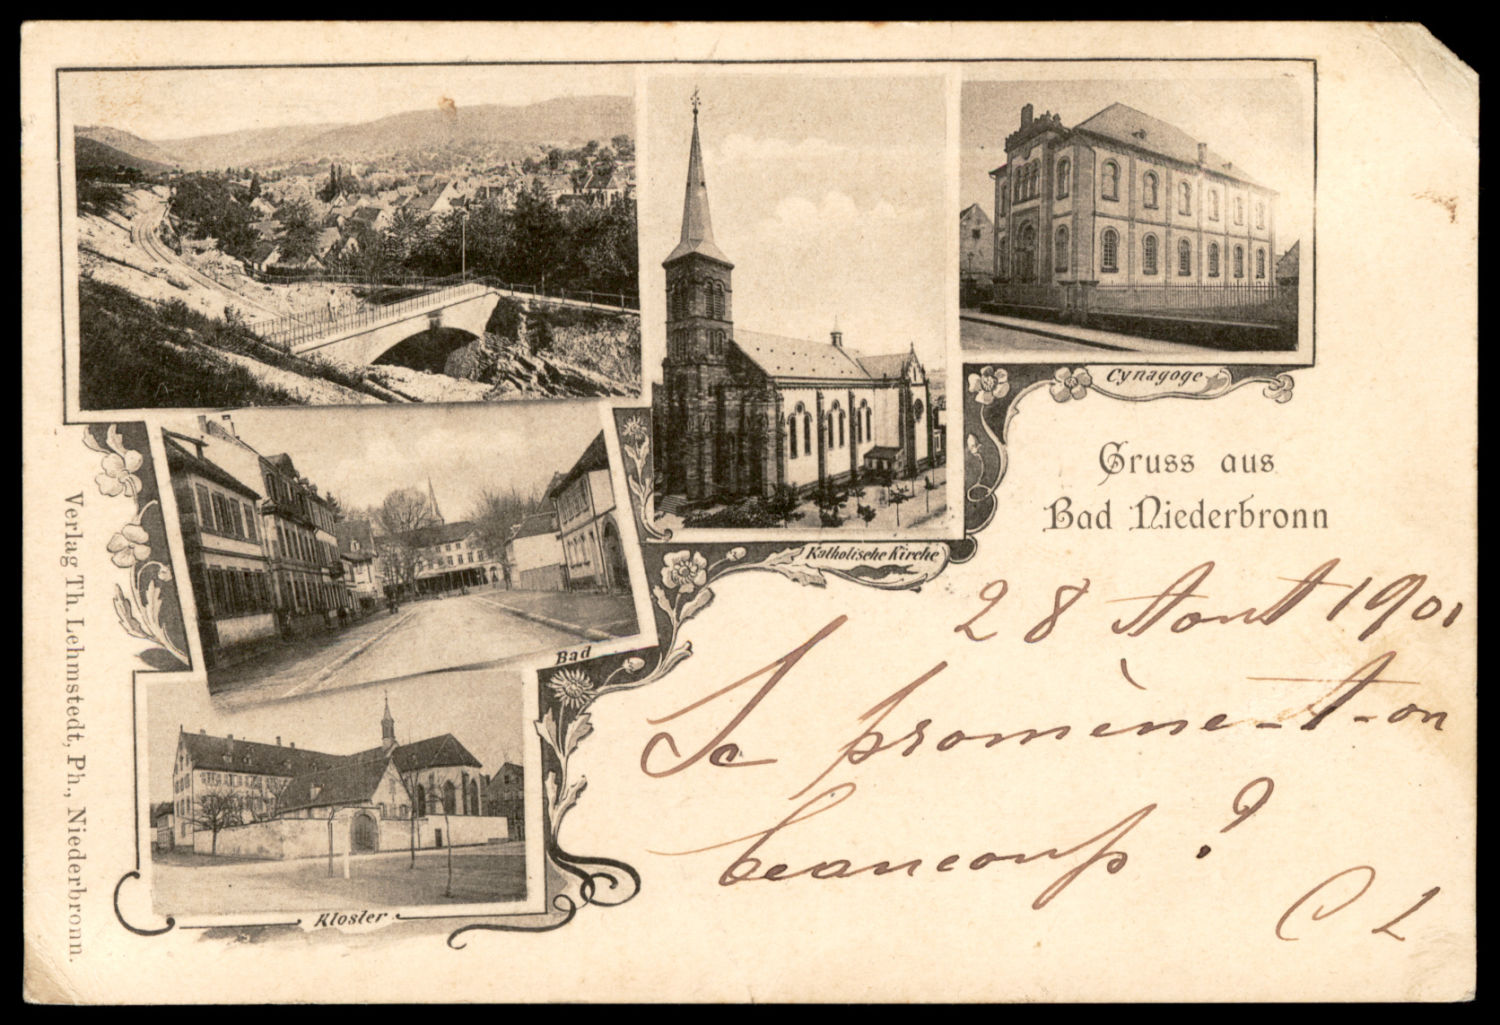 Cynagoge
Gruss aus
Bad Niederbronn
Katholische Kirche
28 Aout 1901
Se promène-t-on
beaucoup?
C L
Bad
Kloster
Verlag Th. Lehmstedt, Ph., Niederbronn.